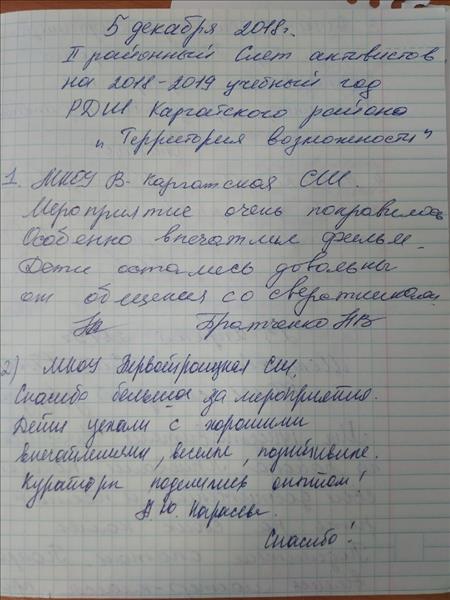 5 декабря 2018г.
II районный Слет активистов
на 2018-2019 учебный год
РДШ Каргатского района
"Территория возможности"
1. МКОУ В-Каргатская СШ.
Мероприятие очень понравилось
Особенно впечатлил фильм.
Дети остались довольны
от общения со сверстниками
Братченко НВ
2) МКОУ Первотроицкая СШ
Спасибо большое за мероприятия.
Дети уехали с хорошими
впечатлениями, весёлые, позитивные.
Кураторы поделились опытом!
Н.Ю. Карасева
Спасибо!